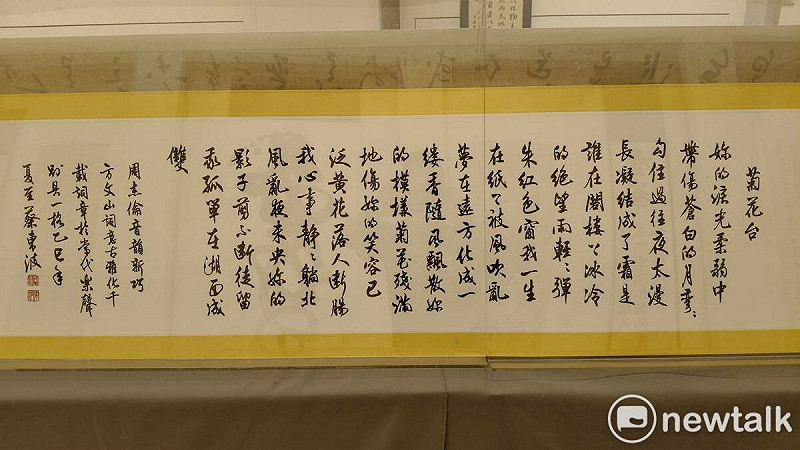 菊花台
妳的淚光柔弱中
帶傷蒼白的月彎〻
勾住過往夜太漫
長凝結成了霜是
誰在閣樓上冰冷
的絕望雨輕〻彈
朱紅色窗我一生
在紙上被風吹亂
夢在遠方化成一
縷香隨風飄散妳
的模樣菊花殘滿
地傷妳的笑容已
泛黃花落人斷腸
我心事靜〻躺北
風亂夜未央妳的
影子剪不斷徒留
我孤單在湖面成
雙
周杰倫音韻新巧
方文山詞意古雅化千
載詞章於當代樂聲
別具一格乙巳年
夏至蔡東波
newtalk